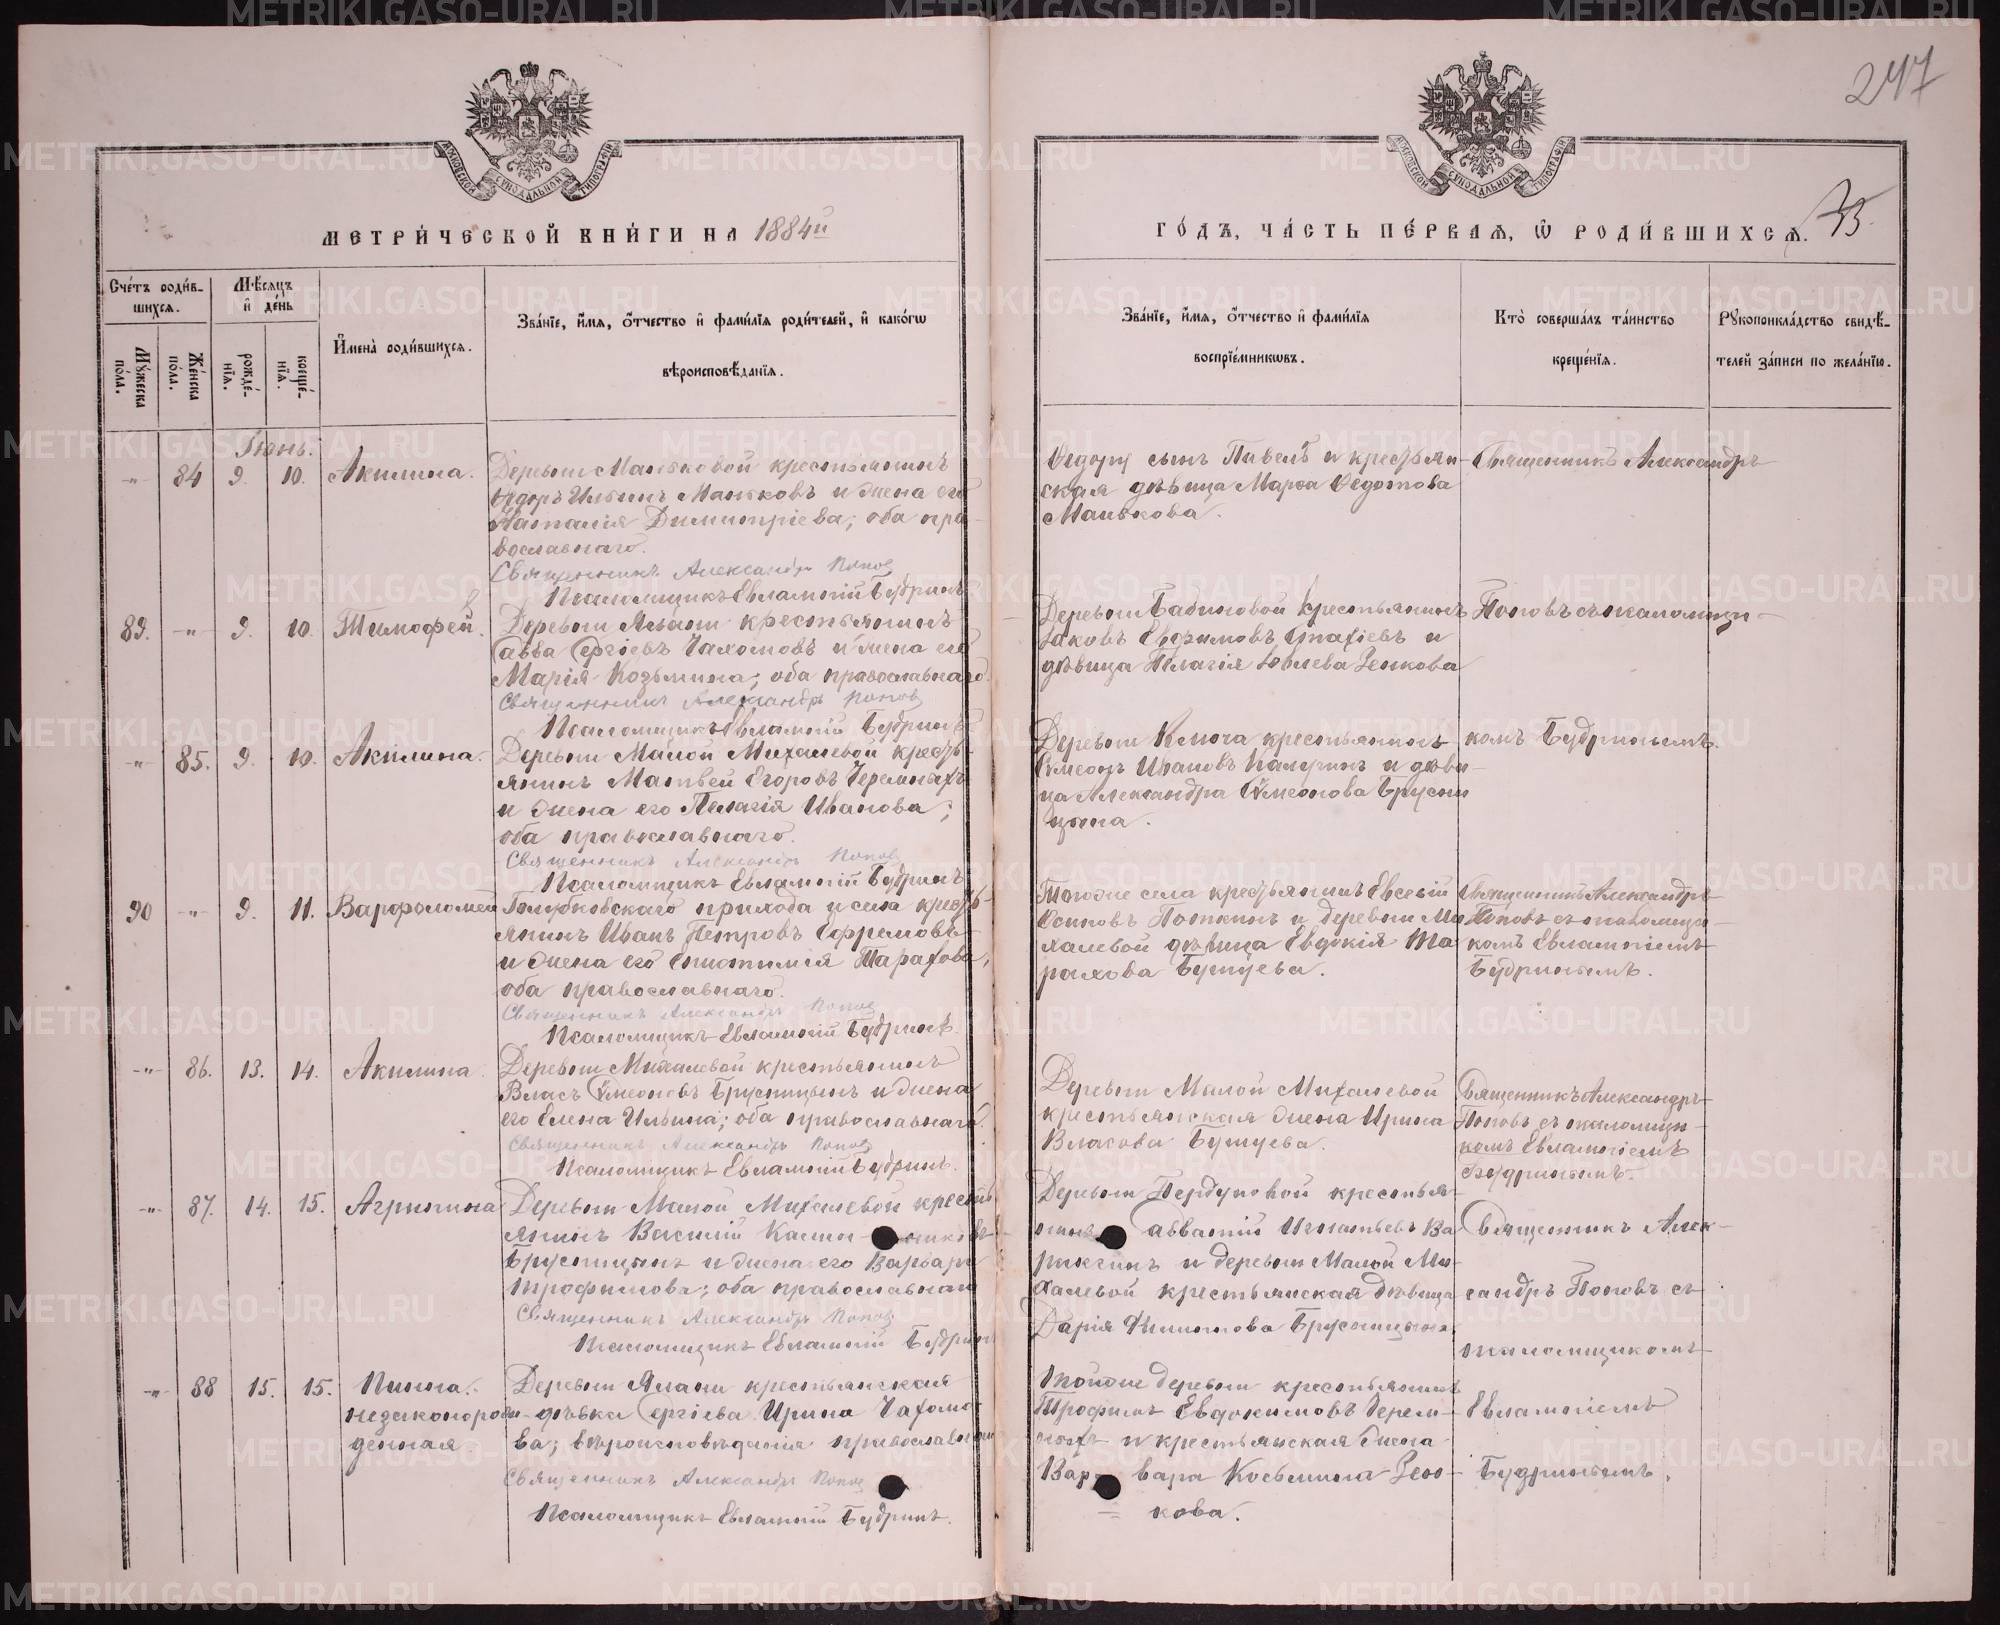 247
МОСКОВСКОЙ СѴНОДАЛЬНОЙ ТИПОГРАФІИ
МОСКОВСКОЙ СѴНОДАЛЬНОЙ ТИПОГРАФІИ
МЕТРИ́ЧЕСКОЙ КНИ́ГИ НА 1884й
ГО́ДЪ, ЧА́СТЬ ПЕ́РВАѦ, Ѡ҆ РОДИ́ВШИХСѦ.
Сче́тъ роди́в-
шихся.
Мѣ́сяцъ
и҆ де́нь
Мꙋ́жеска по́ла.
Же́нска по́ла.
рожде́-
нїя.
креще́-
нїя.
И҆мена̀ роди́вшихся.
Зва́нїе, и҆́мя, ѻ҆́тчество и҆ фами́лїя роди́телей, и҆ како́гѡ
вѣроисповѣ́данїя.
Зва́нїе, и҆́мя, ѻ҆́тчество и҆ фами́лїя
воспрїе́мникѡвъ.
Кто̀ соверша́лъ та́инство
креще́нїя.
Рꙋкоприкла́дство свидѣ́-
телей за́писи по жела́нїю.
Іюнь.
-"- 84 9. 10. Акилина.
Деревни Маньковой крестьянинъ
Ѳедоръ Ильинъ Маньковъ и жена его
Наталія Димитріева; оба пра-
вославнаго.
Священникъ Александръ Попов
Псаломщикъ Евлампій Будринъ
Ѳедору сынъ Павелъ и крестьян-
ская дѣвица Марѳа Ѳедотова
Манькова.
Священникъ Александръ
89. -"- 9. 10. Тимофей.
Деревни крестьянинъ
Савва Сергіевъ Чахомовъ и жена его
Марія Козьмина; оба православнаго.
Священникъ Александръ Попов
Псаломщикъ Евлампій Будринъ
Деревни Бабиновой крестьянинъ
Іаковъ Евфимовъ и
дѣвица Пелагія Зенкова
Поповъ съ псаломщи-
-"- 85. 9. 10. Акилина.
Деревни Малой Михалевой кресть-
янинъ Матвей Егоровъ Черемныхъ
и жена его Пелагія Иванова;
оба православнаго.
Священникъ Александръ Попов
Псаломщикъ Евлампій Будринъ
Деревни Ключа крестьянинъ
Сѵмеонъ Ивановъ и дѣви-
ца Александра Сѵмеонова Брусни
цына.
комъ Будринымъ.
90 -"- 9. 11. Варфоломей
Голубковскаго прихода и села кресть-
янинъ Иванъ Петровъ Ефремовъ
и жена его Тарахова,
оба православнаго.
Священникъ Александръ Попов
Псаломщикъ Евлампій Будринъ.
Тогоже села крестьянинъ Евсевій
Осиповъ и деревни Ми
халевой дѣвица Евдокія Та
рахова Бушуева.
Священникъ Александръ
Поповъ съ псаломщи-
комъ Евлампіемъ
Будринымъ.
-"- 86. 13. 14. Акилина.
Деревни Михалевой крестьянинъ
Власъ Сѵмеоновъ Брусницынъ и жена
его Елена Ильина; оба православнаго.
Священникъ Александръ Попов
Псаломщикъ Евлампій Будринъ.
Деревни Малой Михалевой
крестьянская жена Ирина
Власова Бушуева.
Священникъ Александръ
Поповъ съ псаломщи-
комъ Евлампіемъ
Будринымъ.
-"- 87. 14. 15. Агрипина
Деревни Малой Михалевой кресть
янинъ Василій
Брусницынъ и жена его Варвара
Трофимова; оба православнаго
Священникъ Александръ Попов
Псаломщикъ Евлампій Будрин
Деревни крестья-
нинъ Савватій Игнатьевъ Ва
и деревни Малой Ми-
халевой крестьянская дѣвица
Дарія Филипова Брусницына.
Священникъ Алек-
сандръ Поповъ съ
псаломщикомъ
-"- 88 15. 15. Пинна.
незаконорож-
денная
Деревни крестьянская
дѣвка Сергіева Ирина Чахомо-
ва; вѣроисповѣданія православнаго
Священникъ Александръ Попов
Псаломщикъ Евлампій Будринъ.
Тойже деревни крестьянинъ
Трофимъ Евдокимовъ Черем-
ныхъ и крестьянская жена
Варвара Косьмина Зен-
кова.
Евлампіемъ
Будринымъ.